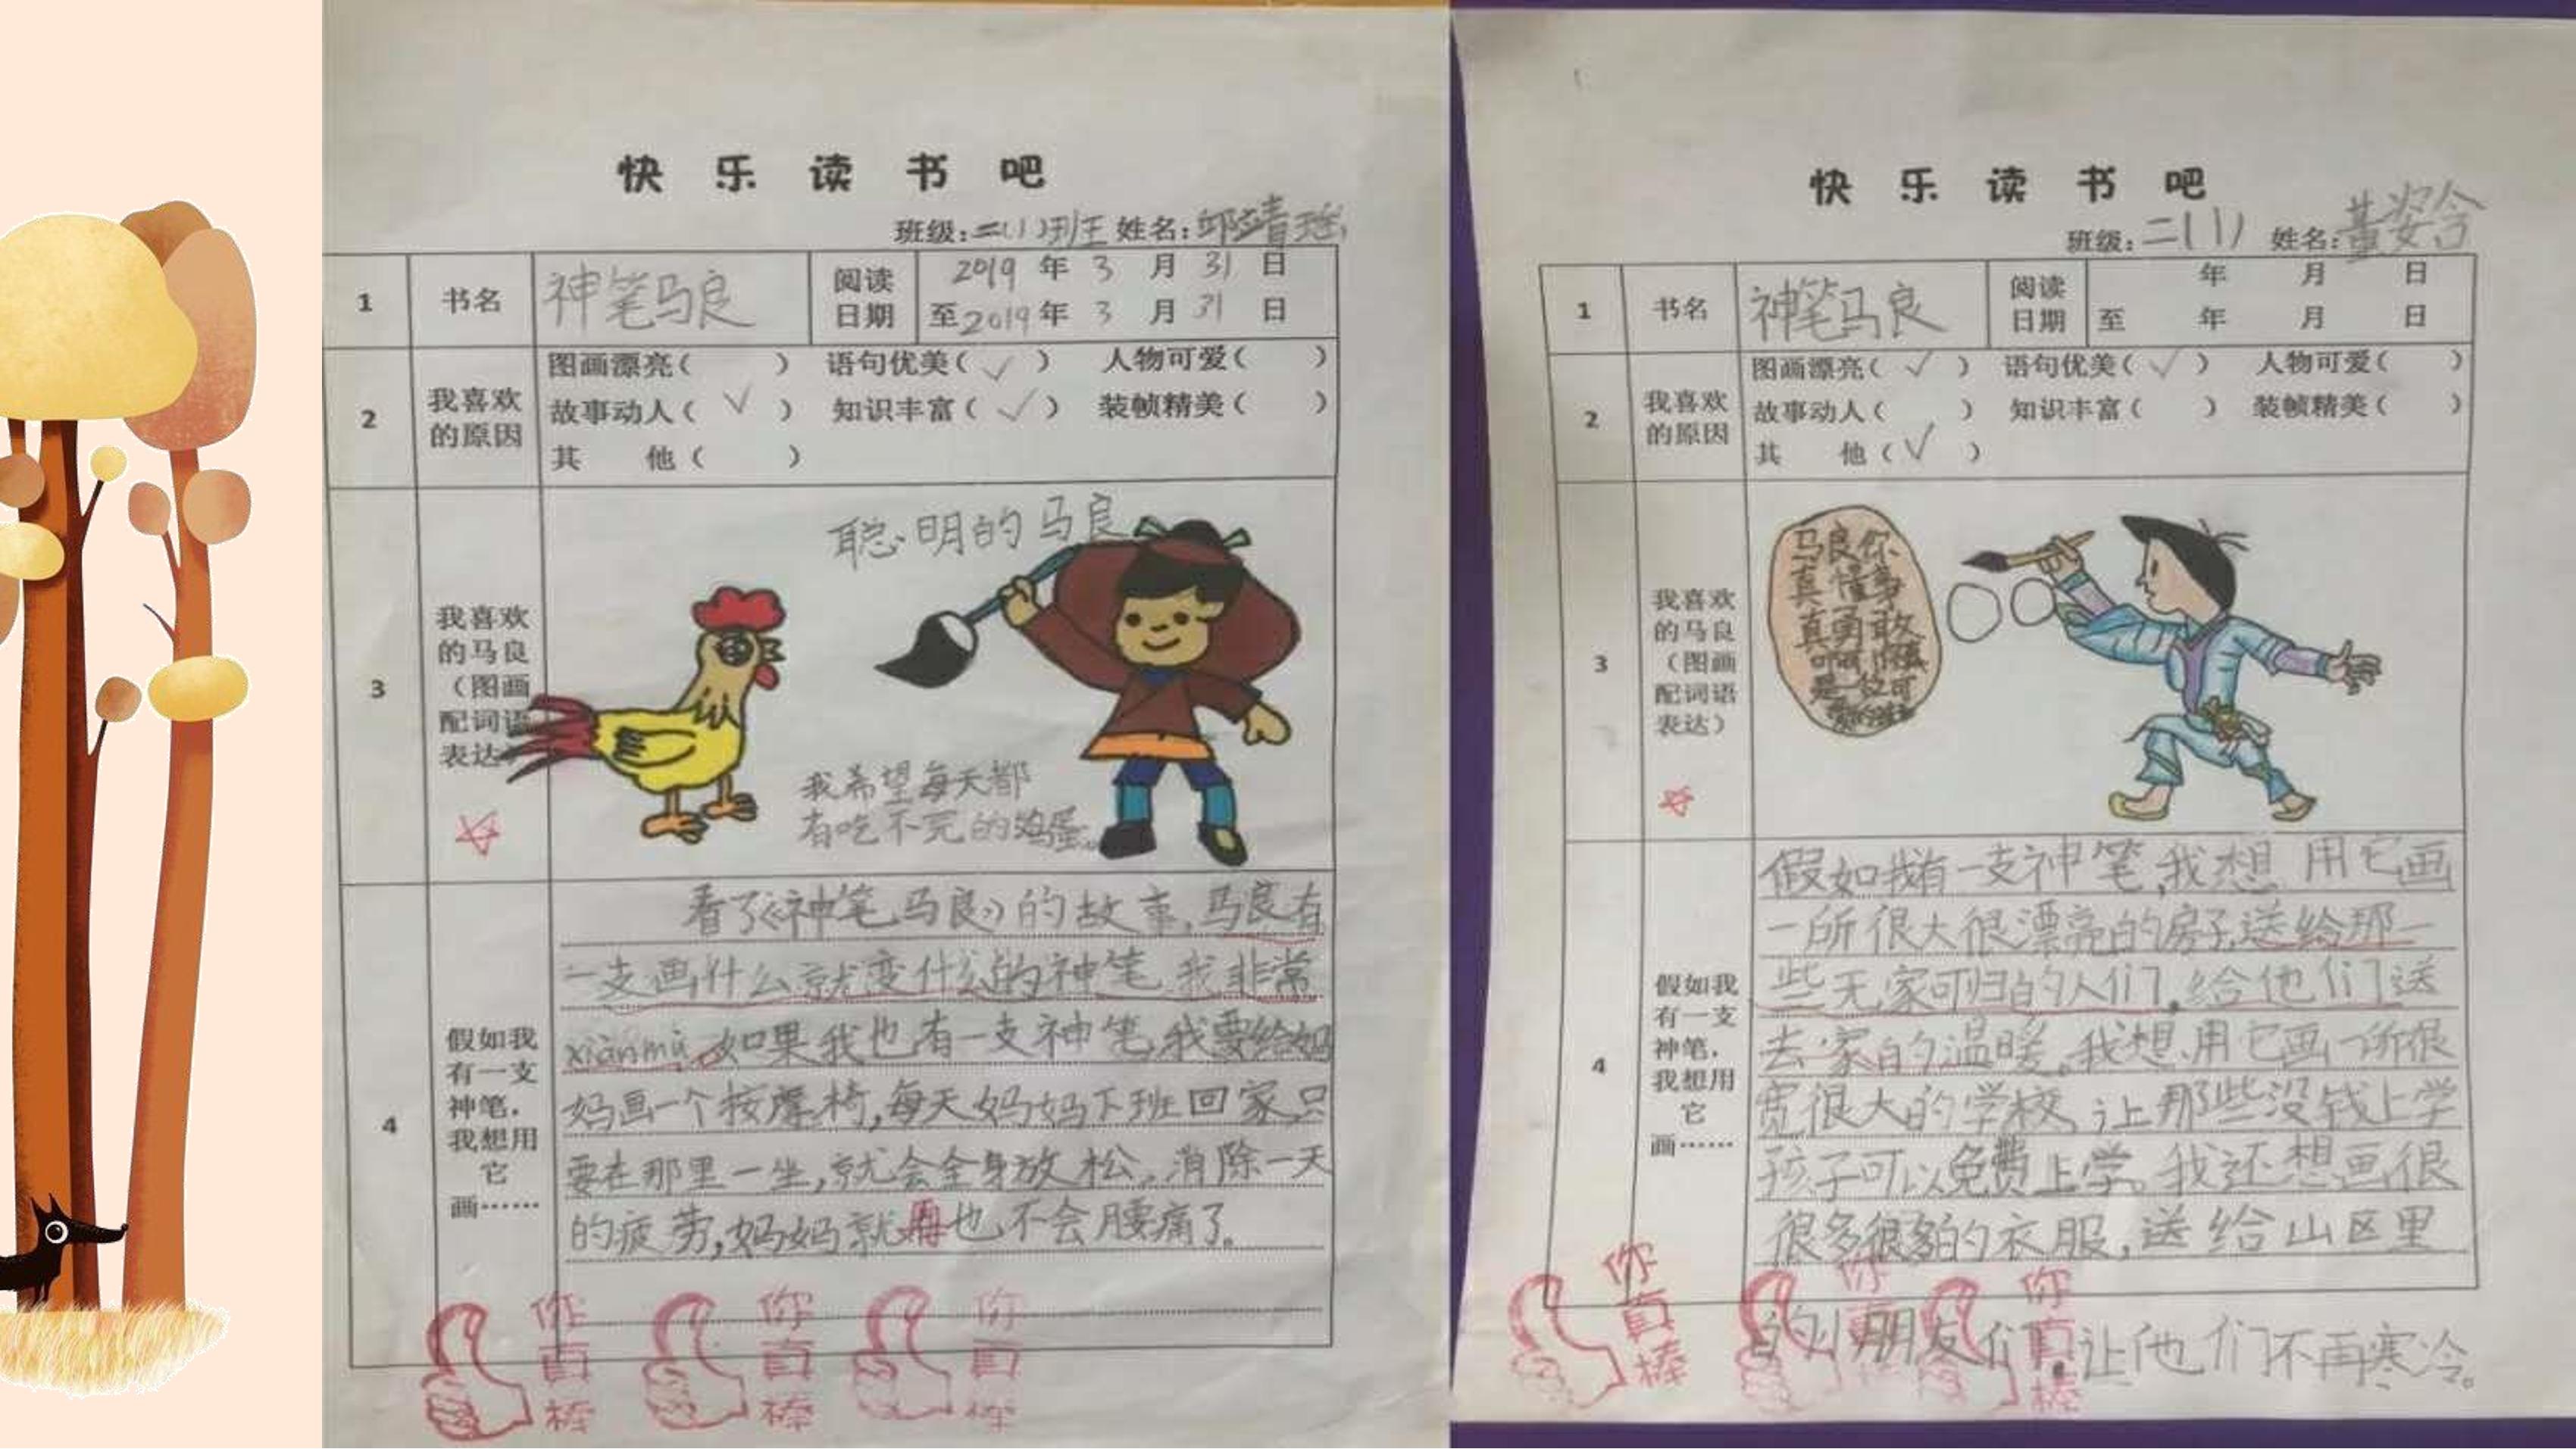 快乐读书吧
班级:二(1)班 姓名:邱靖瑶
1 书名 神笔马良 阅读日期 2019年3月31日
至2019年3月31日
2 我喜欢的原因
图画漂亮( ) 语句优美(√) 人物可爱( )
故事动人(√) 知识丰富(√) 装帧精美( )
其 他( )
3 我喜欢的马良(图画配词语表达)
聪明的马良
我希望每天都
有吃不完的鸡蛋。
4 假如我有一支神笔,我想用它画……
看了《神笔马良》的故事,马良有
一支画什么就变什么的神笔,我非常
xiànmù。如果我也有一支神笔,我要给妈
妈画一个按摩椅,每天妈妈下班回家,只
要在那里一坐,就会全身放松。消除一天
的疲劳,妈妈就再也不会腰痛了。
你真棒
你真棒
你真棒
快乐读书吧
班级:二(1) 姓名:黄姿含
1 书名 神笔马良 阅读日期 年 月 日
至 年 月 日
2 我喜欢的原因
图画漂亮(√) 语句优美(√) 人物可爱( )
故事动人( ) 知识丰富( ) 装帧精美( )
其 他(√)
3 我喜欢的马良(图画配词语表达)
马良你
真懂事
真勇敢
是一位可
4 假如我有一支神笔,我想用它画……
假如我有一支神笔,我想用它画
一所很大很漂亮的房子,送给那一
些无家可归的人们。给他们送
去家的温暖。我想用它画一所很
宽很大的学校,让那些没钱上学
孩子可以免费上学。我还想画很
很多很多的衣服,送给山区里
的小朋友们,让他们不再寒冷。
你真棒
你真棒
你真棒